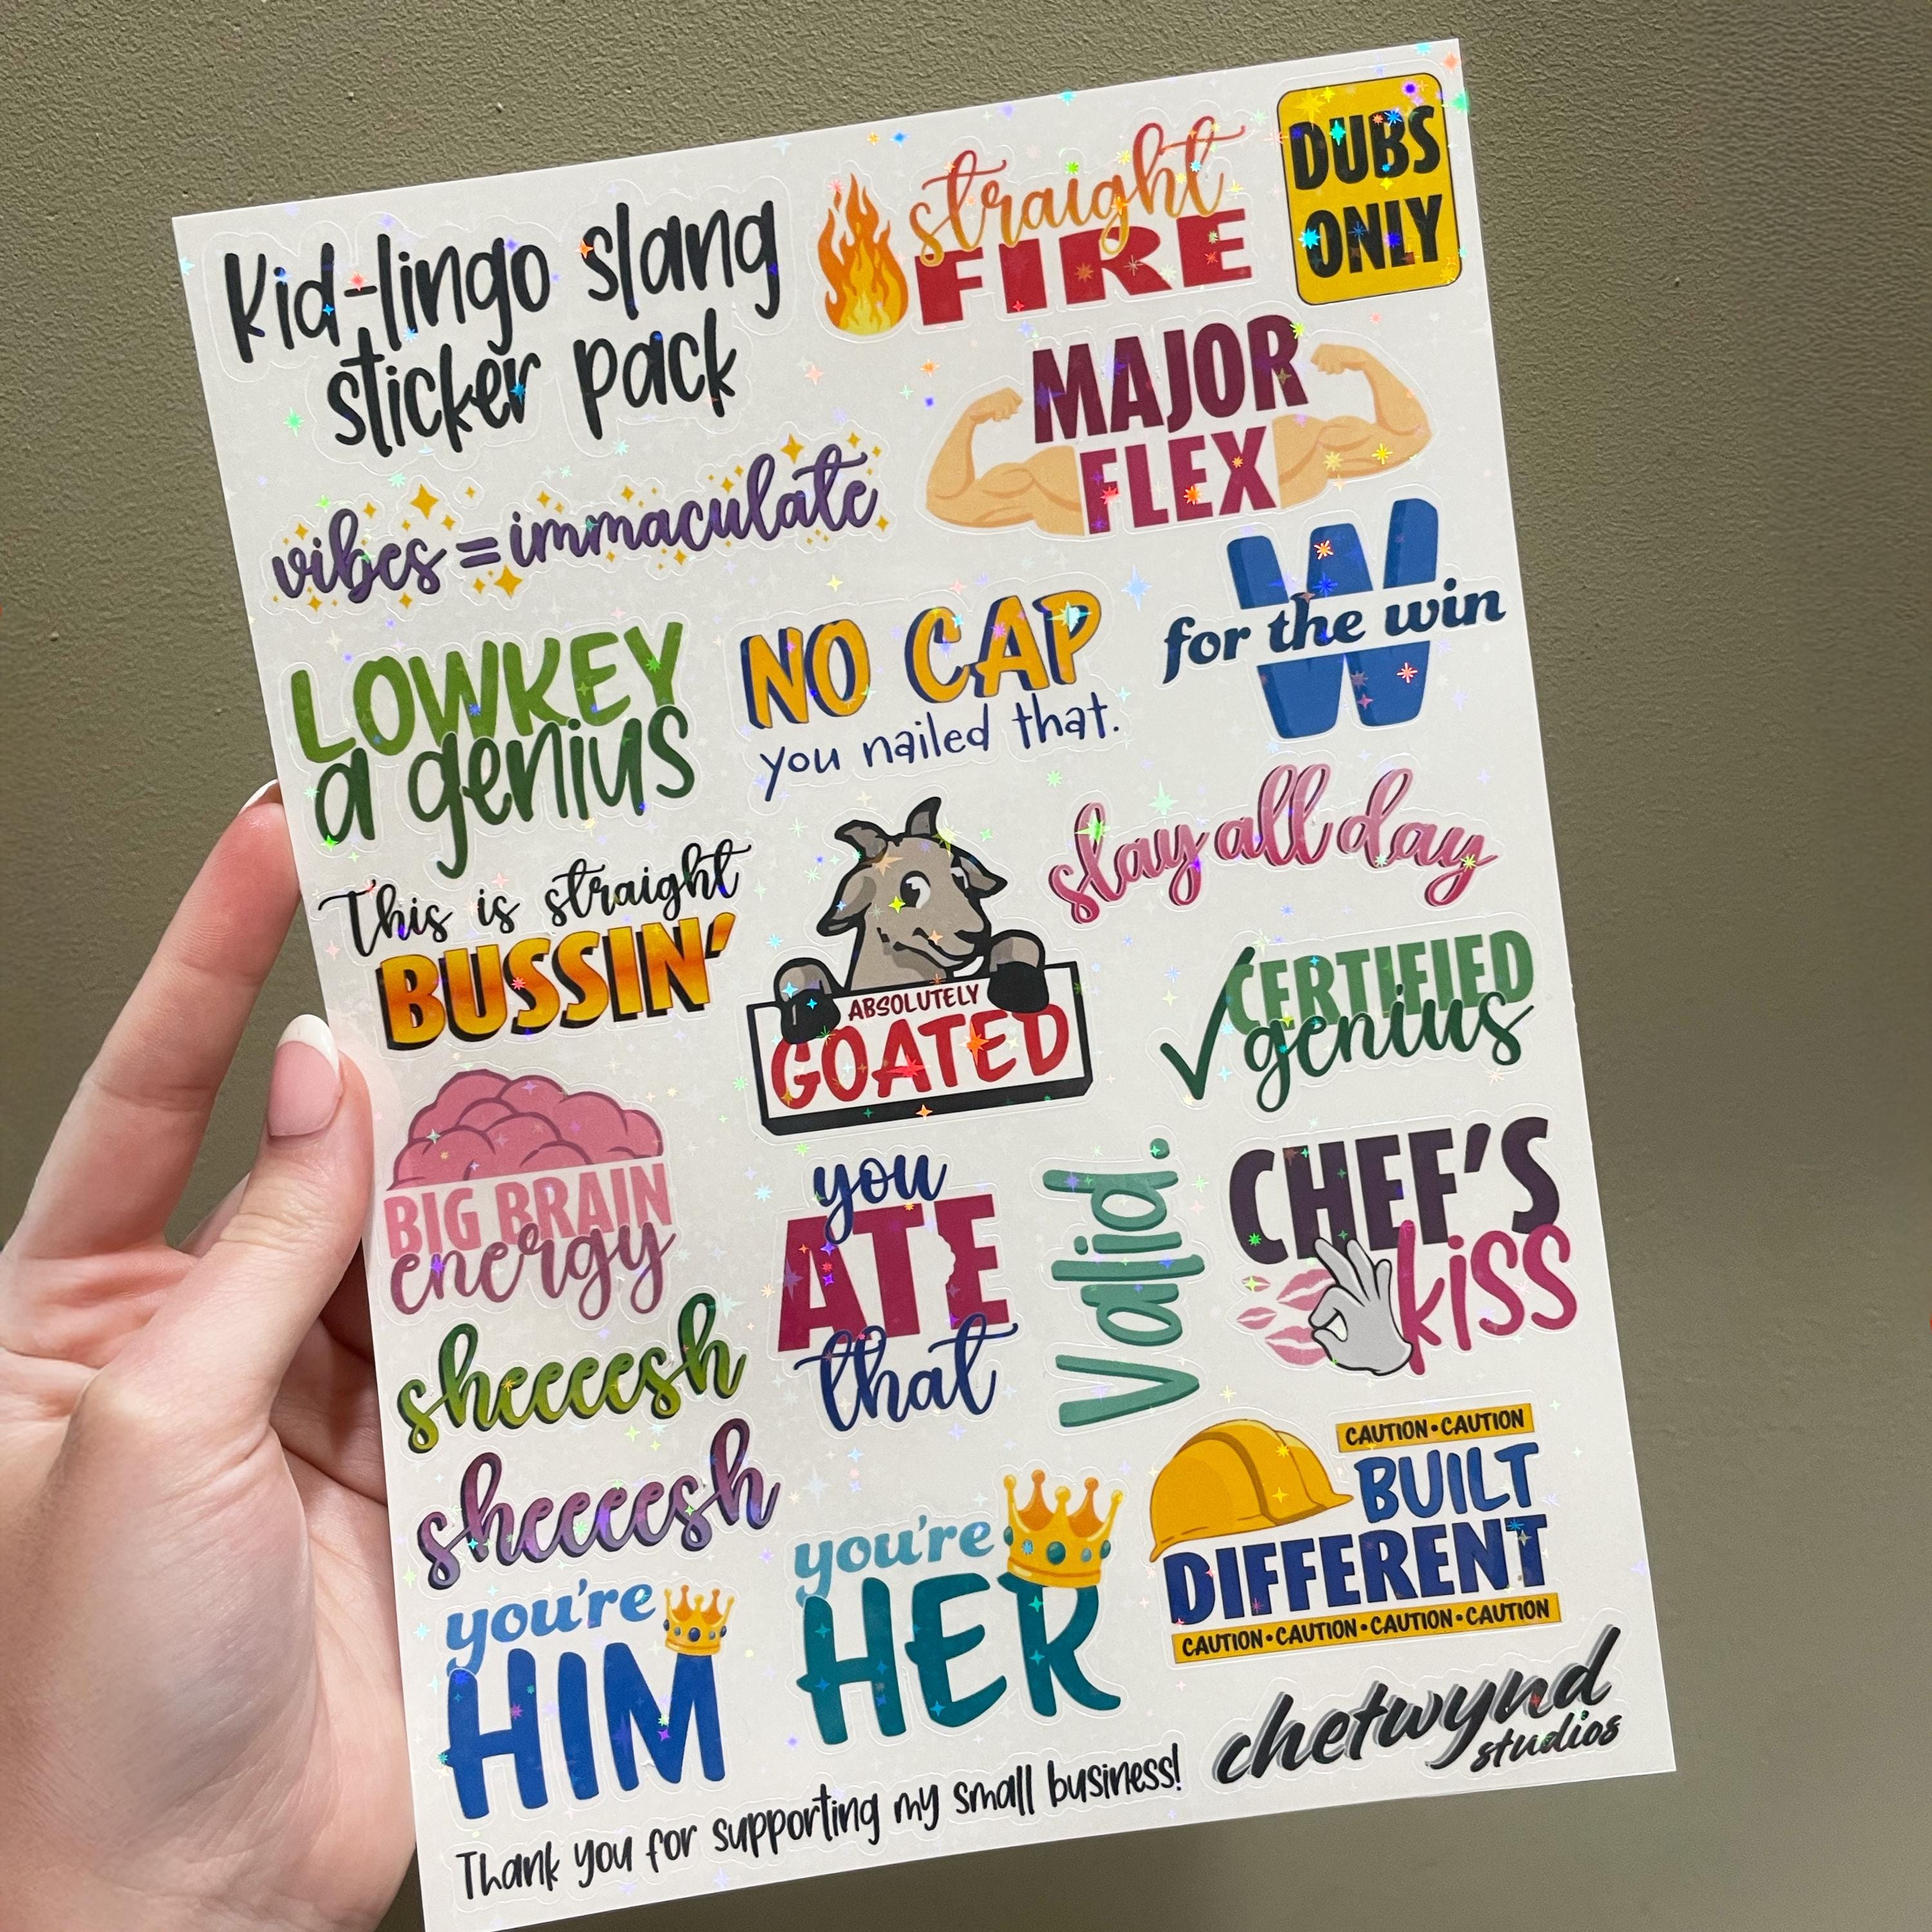 Kid-lingo slang
sticker pack
straight
FIRE
DUBS
ONLY
MAJOR
FLEX
vibes = immaculate
W
for the win
LOWKEY
a genius
NO CAP
you nailed that.
slay all day
This is straight
BUSSIN'
ABSOLUTELY
GOATED
CERTIFIED
genius
BIG BRAIN
energy
you
ATE
that
Valid.
CHEF'S
kiss
sheeeesh
sheeeesh
CAUTION•CAUTION
BUILT
DIFFERENT
CAUTION•CAUTION•CAUTION•CAUTION
you're
HIM
you're
HER
chetwynd
studios
Thank you for supporting my small business!